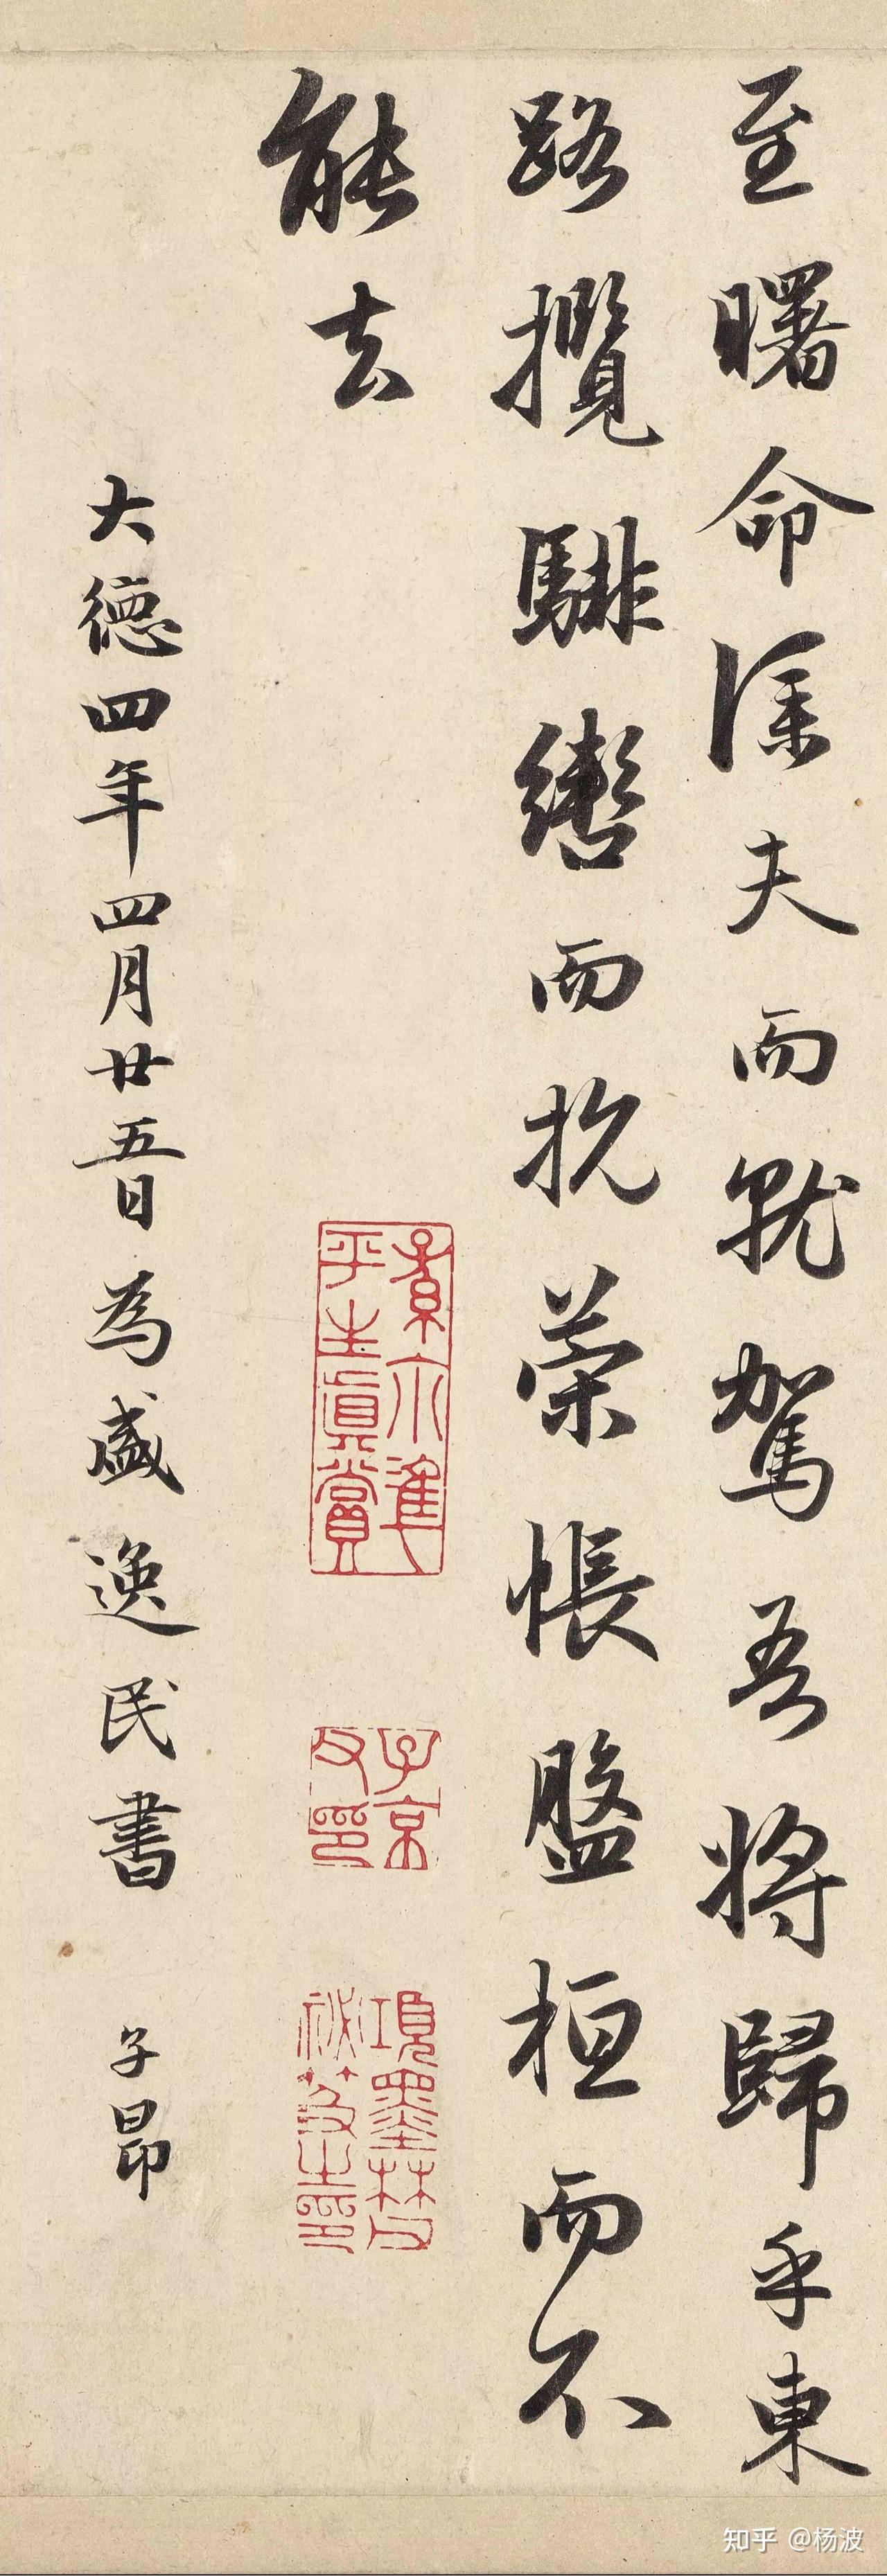 至曙命僕夫而就駕吾將歸乎東
路攬騑轡而抗策悵盤桓而不
能去
平生真賞
子京父印
項墨林父祕笈之印
大德四年四月廿五日為盛逸民書 子昂
知乎 @杨波